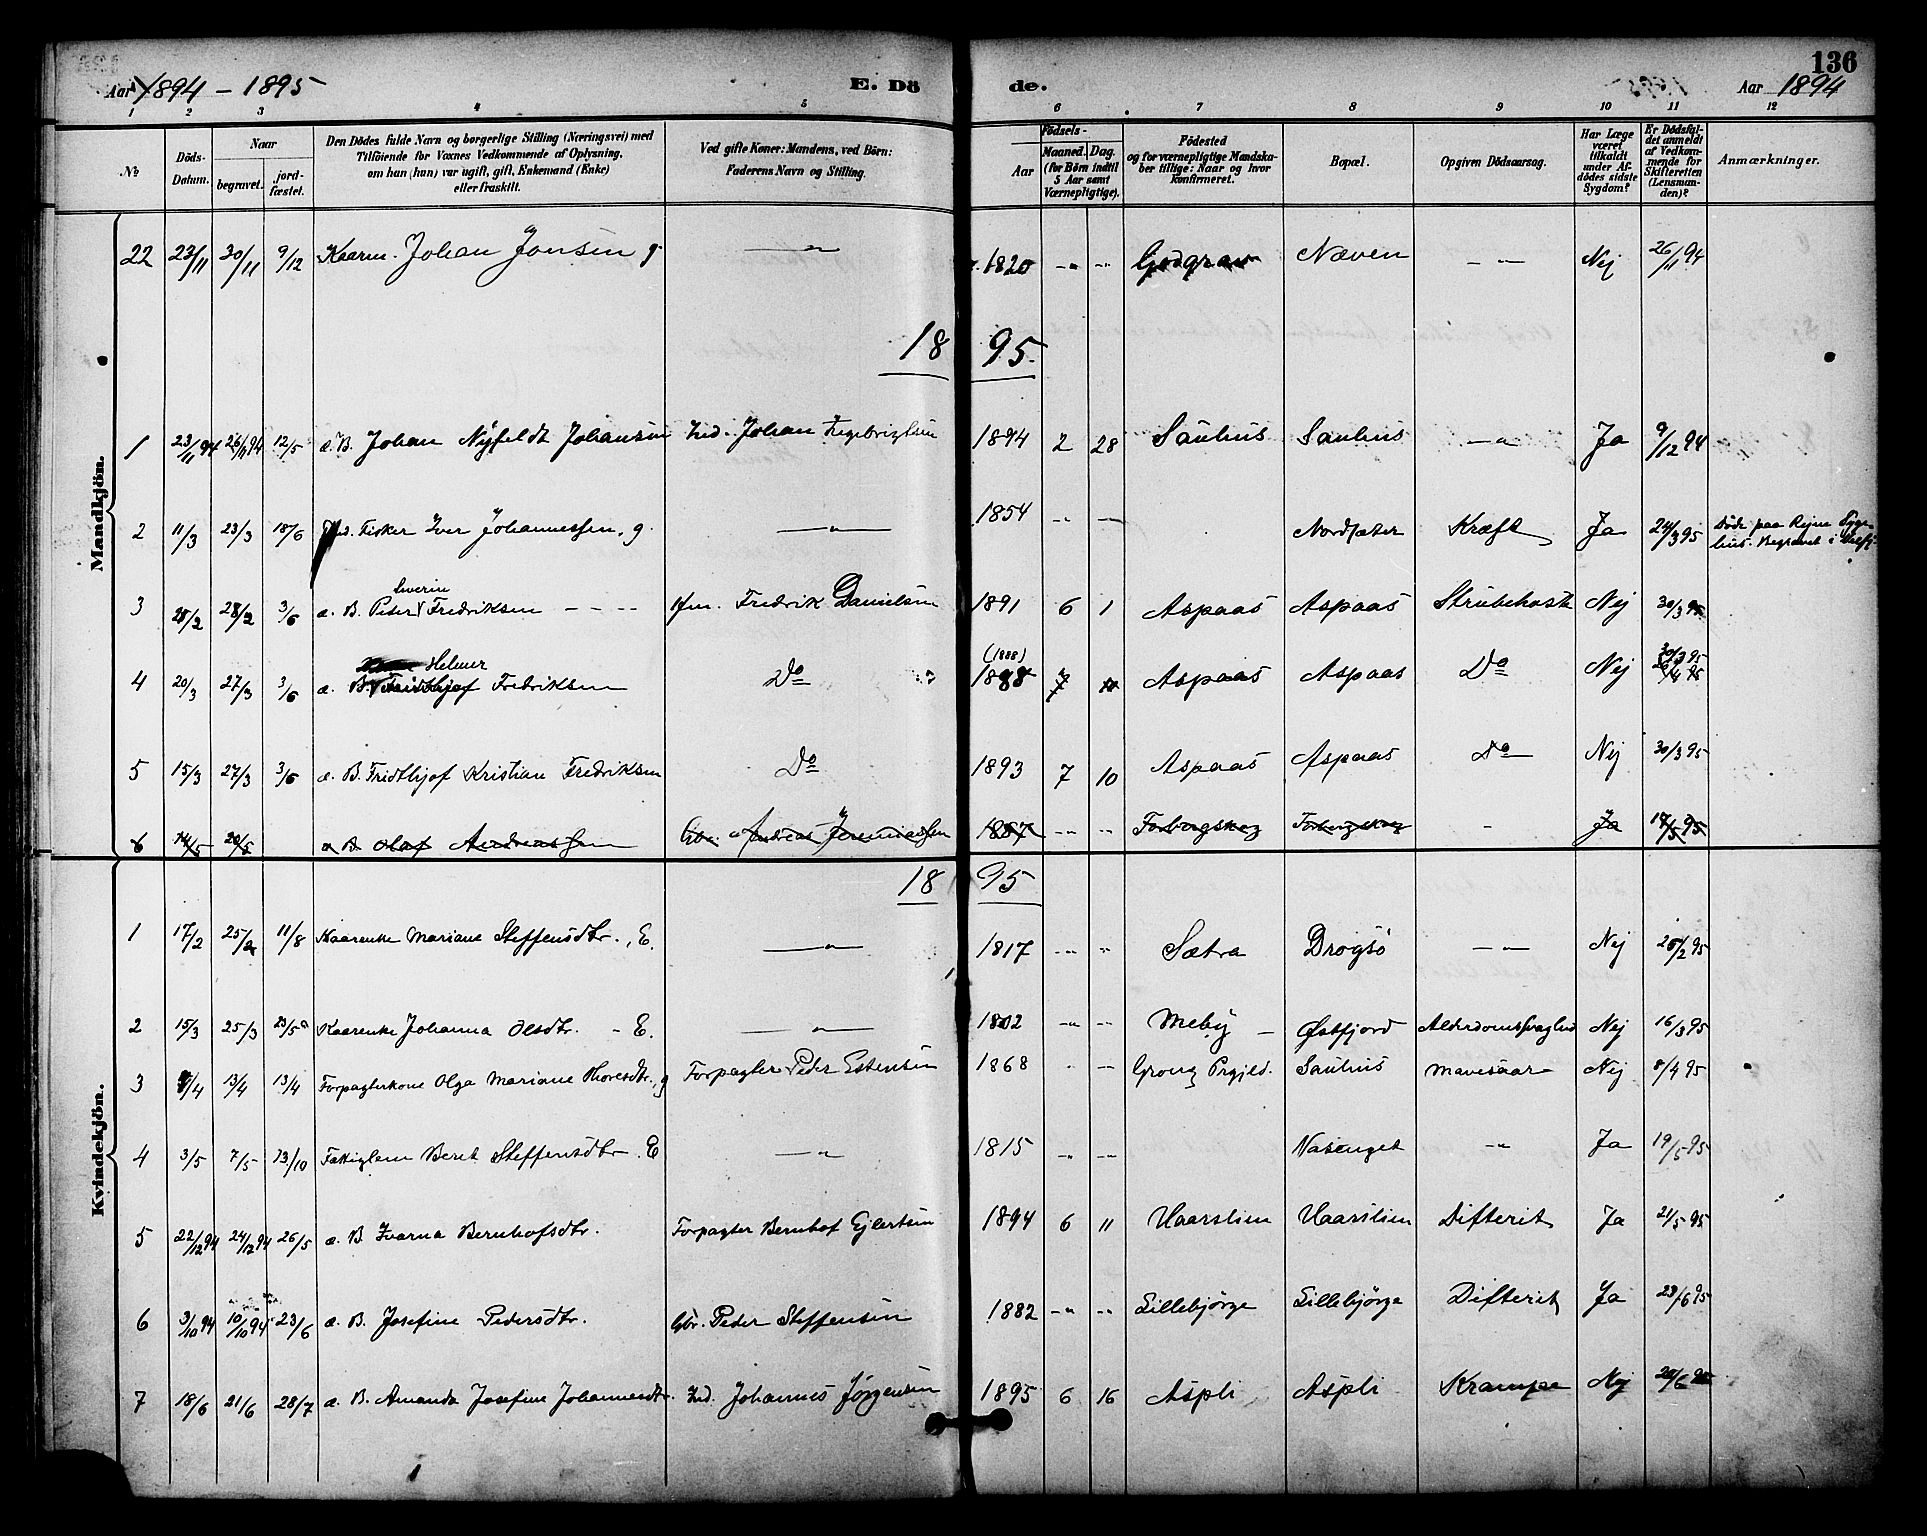 136
Aar 1894 - 1895 E. Dö de. Aar 1894
1 2 3 4 5 6 7 8 9 10 11 12
№
Döds-Datum.
Naar
begravet.
jord-fæstet.
Den Dödes fulde Navn og borgerlige Stilling (Næringsvei) med
Tilföiende for Voxnes Vedkommende af Oplysning,
om han (hun) var ugift, gift, Enkemand (Enke)
eller fraskilt.
Ved gifte Koner: Mandens, ved Börn:
Faderens Navn og Stilling.
Födsels-
Aar
Maaned. Dag.
(for Börn indtil
5 Aar samt
Værnepligtige).
Födested
og for værnepligtige Mandska-
ber tillige: Naar og hvor
konfirmeret.
Bopæl.
Opgiven Dödsaarsag.
Har Læge
været
tilkaldt
under Af-
dödes sidste
Sygdom?
Er Dödsfal-
det anmeldt
af Vedkom-
mende for
Skifteretten
(Lensman-
den)?
Anmærkninger.
Mandkjön.
22 23/11 30/11 9/12 Kaarm. Johan Jonsen g — " — 1820 -"- -"- Næven - " - Nej 26/11 94
18 95.
1 23/11 94 26/11 94 12/5 æ. B. Johan Nyfeldt Johansen Ind. Johan Ingebrigtsen 1894 2 28 Saulius Saulius - " Ja 9/12 94
2 11/3 23/3 18/6 Ind. Fisker Iver Johannessen, g. — " — 1854 -"- — Nordsæter Kræft Ja 24/3 95 Döde paa Rejne Syge-
hus. Begravet i
3 28/2 28/2 3/6 æ. B. Peter Severin Fredriksen - - - - Fredrik Danielsen 1891 6 1 Aspaas Aspaas Strubehoste Nej 30/3 95
4 20/3 27/3 3/6 æ. B. Helmer Fredriksen Do (1888) 1888 7 Aspaas Aspaas Do Nej 30/3 95
5 15/3 27/3 3/6 æ. B. Fridthjof Kristian Fredriksen Do 1893 7 10 Aspaas Aspaas Do Nej 30/3 95
6 14/5 20/5 æ B Olaf Andreassen Gbr. Andreas Jeremiassen 1887 -"- -"- Forbergskog Forbergskog - Ja 17/5 95
Kvindekjön.
18 95
1 17/2 25/2 11/8 Kaarenke Mariane Steffensdtr., E. — " — 1817 -"- " Sætra Drogsö - " - Nej 25/2 95
2 15/3 25/3 23/5 Kaarenke Johanna Olsdtr. - E. — " — 1802 -"- -"- Meby - Østfjord Alderdomssvaghed Nej 16/3 95
3 7/4 13/4 13/4 Forpagterkone Olga Mariane Thoresdtr., g Forpagter Peder Estensen 1868 " -"- Grong Prgjld. Saulius Mavesaar Nej 8/4 95
4 3/5 7/5 13/10 Fattiglem Beret Steffensdtr. E - " - 1815 -"- -"- Nasenget -"- Ja 19/5 95
5 22/12 94 24/12 94 26/5 æ. B Ivarna Bernhofsdtr. Forpagter Bernhof Ejlertsen 1894 6 11 Haarstien Haarstien Difterit Ja 21/5 95
6 3/10 94 10/10 94 23/6 æ. B. Josefine Pedersdtr. Gbr. Peder Steffensen 1882 -"- -"- Lillebjörge Lillebjörge Difterit Ja 23/6 95
7 18/6 21/6 28/7 æ. B. Amanda Josefine Johannesdtr. Ind. Johannes Jörgensen 1895 6 16 Aspli Aspli Krampe Nej 20/6 95